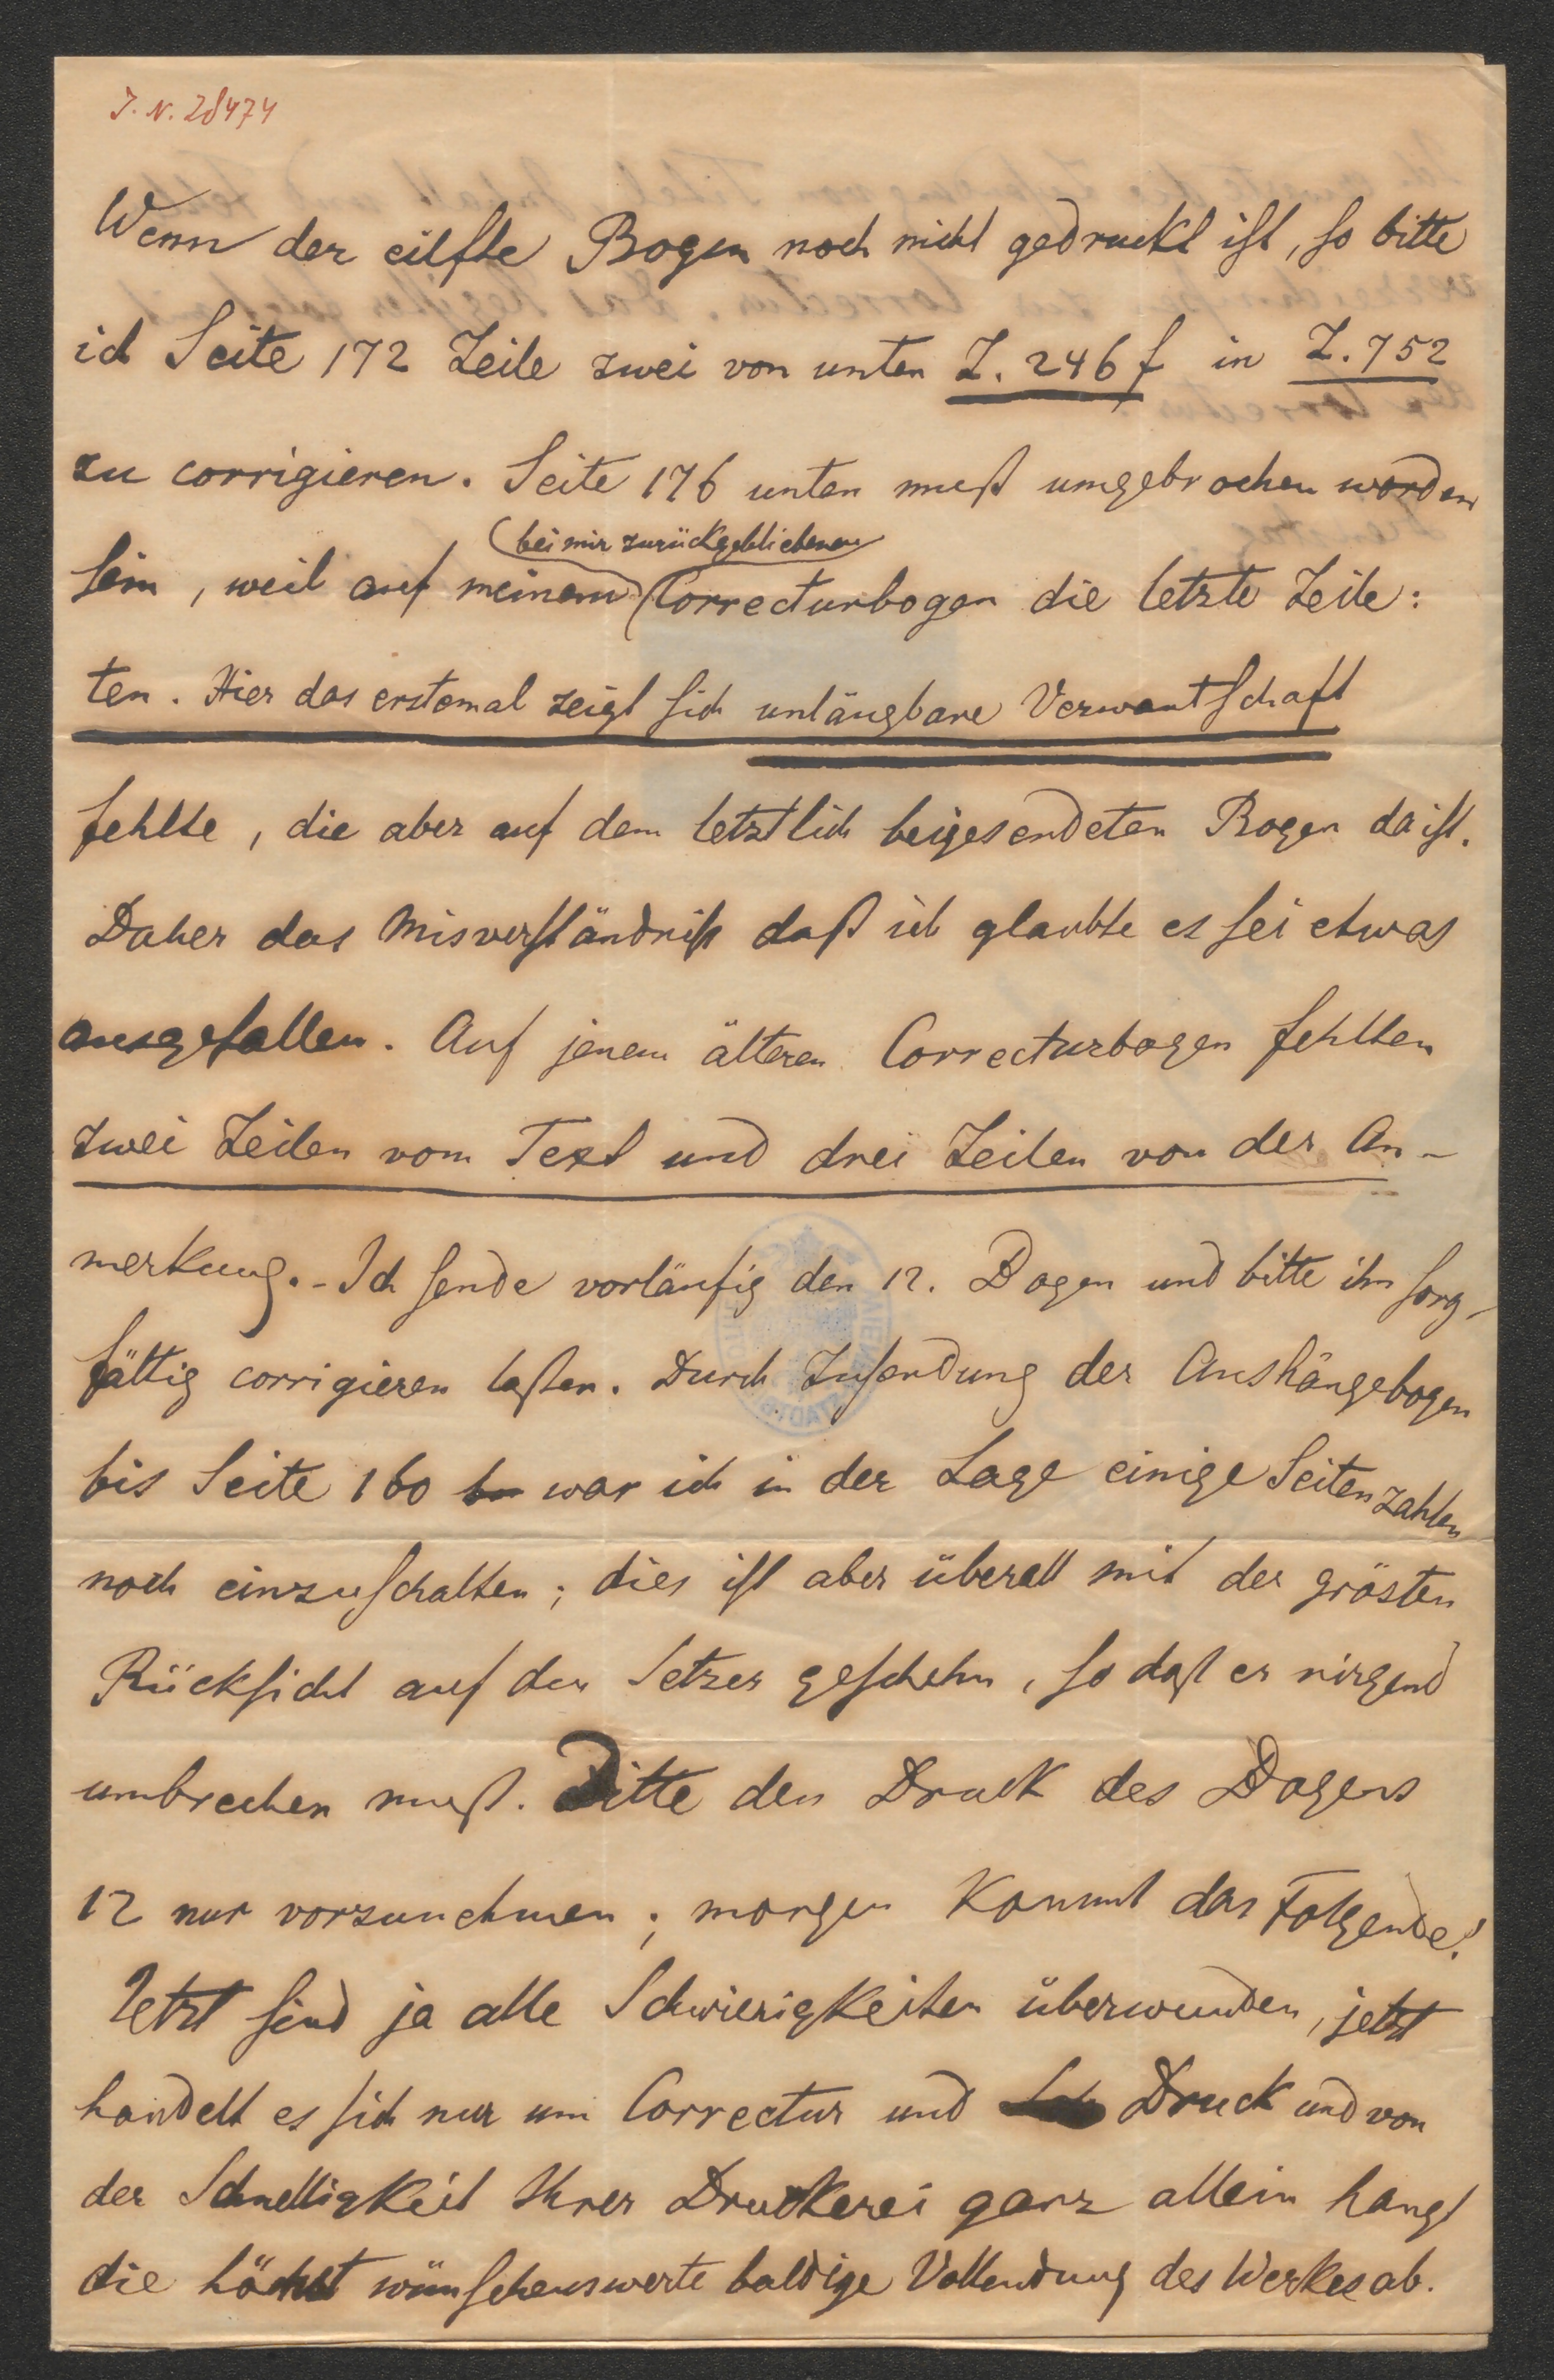 J. N. 28474
Wenn der eilfte Bogen noch nicht gedruckt ist, so bitte
ich Seite 172 Zeile zwei von unten Z. 246 f in Z. 752
zu corrigieren. Seite 176 unten muß umgebrochen worden
(bei mir zurückgebliebenen
sein, weil auf meinem Correcturbogen die letzte Zeile:
ten. Hier das erstemal zeigt sich unläugbare Verwantschaft
fehlte, die aber auf dem letztlich beigesendeten Bogen da ist.
Daher das Misverständniß daß ich glaubte es sei etwas
ausgefallen. Auf jenem älteren Correcturbogen fehlten
zwei Zeilen vom Text und drei Zeilen von der An-
merkung. - Ich sende vorläufig den 12. Bogen und bitte ihn sorg-
fältig corrigieren laßen. Durch Zusendung der Aushängebogen
bis Seite 160 war ich in der Lage einige Seitenzahlen
noch einzuschalten; dies ist aber überall mit der grösten
Rücksicht auf den Setzer geschehn, so daß er nirgend
umbrechen muß. Bitte den Druck des Bogens
12 nur vorzunehmen; morgen kommt das Folgende!
Jetzt sind ja alle Schwierigkeiten überwunden, jetzt
handelt es sich nur um Correctur und Druck und von
der Schnelligkeit Ihrer Druckerei ganz allein hangt
die höchst wünschenswerte baldige Vollendung des Werkes ab.